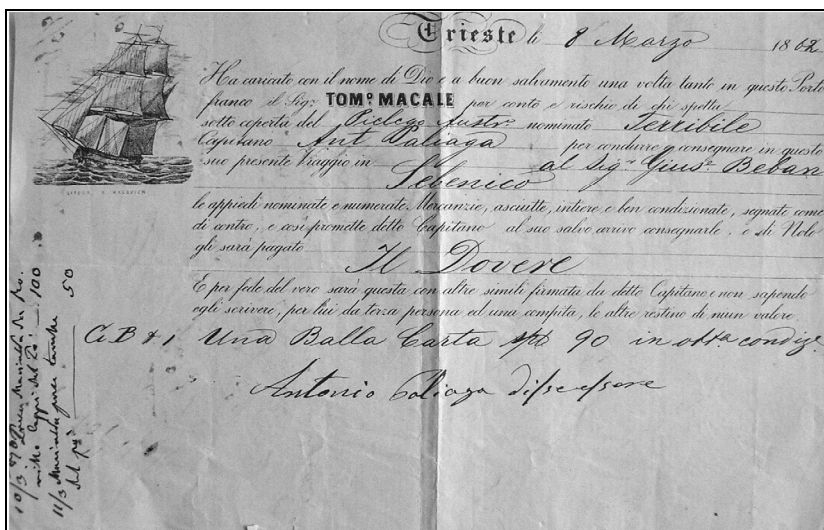 Trieste li 8 Marzo 1862
Ha caricato con il nome di Dio e a buon salvamento una volta tanto in questo Porto
franco il Sigr. TOMo. MACALE per conto e rischio di chi spetta
sotto coperta del Pielego Austro. nominato Terribile
Capitano Ant Paliaga per condurre e consegnare in questo
suo presente Viaggio in Sebenico al Sigr. Giuse. Beban
le appiedi nominate e numerate Mercanzie, asciutte, intiere e ben condizionate, segnate come
di contro, e così promette detto Capitano al suo salvo arrivo consegnarle, e di Nolo
gli sarà pagato Il Dovere
E per fede del vero sarà questa con altre simili firmata da detto Capitano e non sapendo
egli scrivere, per lui da terza persona ed una compita, le altre restino di niun valore.
G B # 1 Una Balla Carta 90 in otta. condize.
Antonio Paliaga
10/3
100
11/3
50